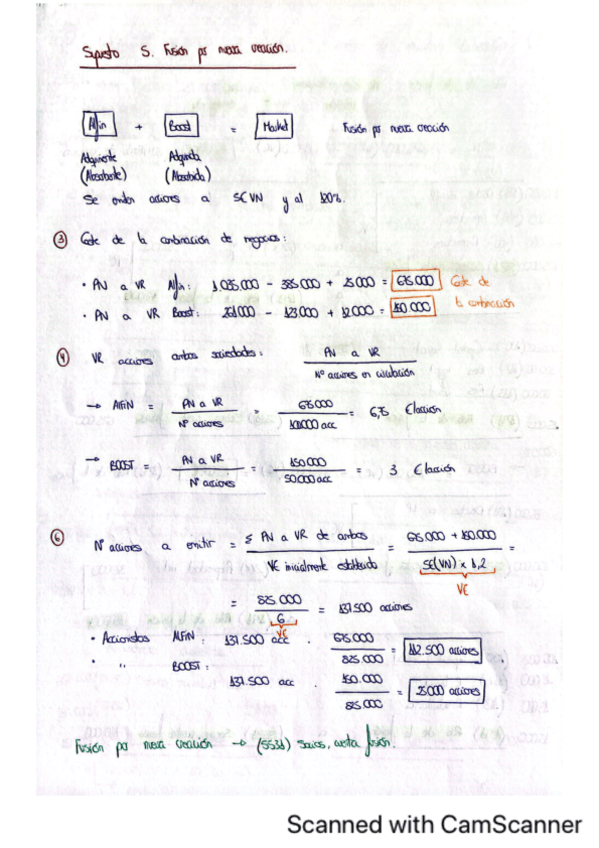 Supuesto 5. Fusión por nueva creación.
Alfin + Boost = Market Fusión por nueva creación
Adquirente Adquirida
(Absorbente) (Absorbida)
Se emiten acciones a 5€ VN y al 120%.
③ Coste de la combinación de negocios:
· PN a VR Alfin: 1.035.000 - 385.000 + 25.000 = 675.000 Coste de
· PN a VR Boost: 261.000 - 123.000 + 12.000 = 150.000 la combinación
④ VR acciones ambas sociedades: PN a VR
Nº acciones en circulación
→ AlFiN = PN a VR = 675.000 = 6,75 €/acción
Nº acciones 100.000 acc
→ BOOST = PN a VR = 150.000 = 3 €/acción
Nº acciones 50.000 acc
⑥ Nº acciones a emitir = Σ PN a VR de ambas = 675.000 + 150.000 =
VE inicialmente establecido 5€(VN) x 1,2
VE
= 825.000 = 137.500 acciones
6
VE
· Accionistas ALFIN: 137.500 acc · 675.000 = 112.500 acciones
825.000
· " BOOST: 137.500 acc · 150.000 = 25000 acciones
825.000
Fusión por nueva creación → (5531) Socios, cuenta fusión.
Scanned with CamScanner